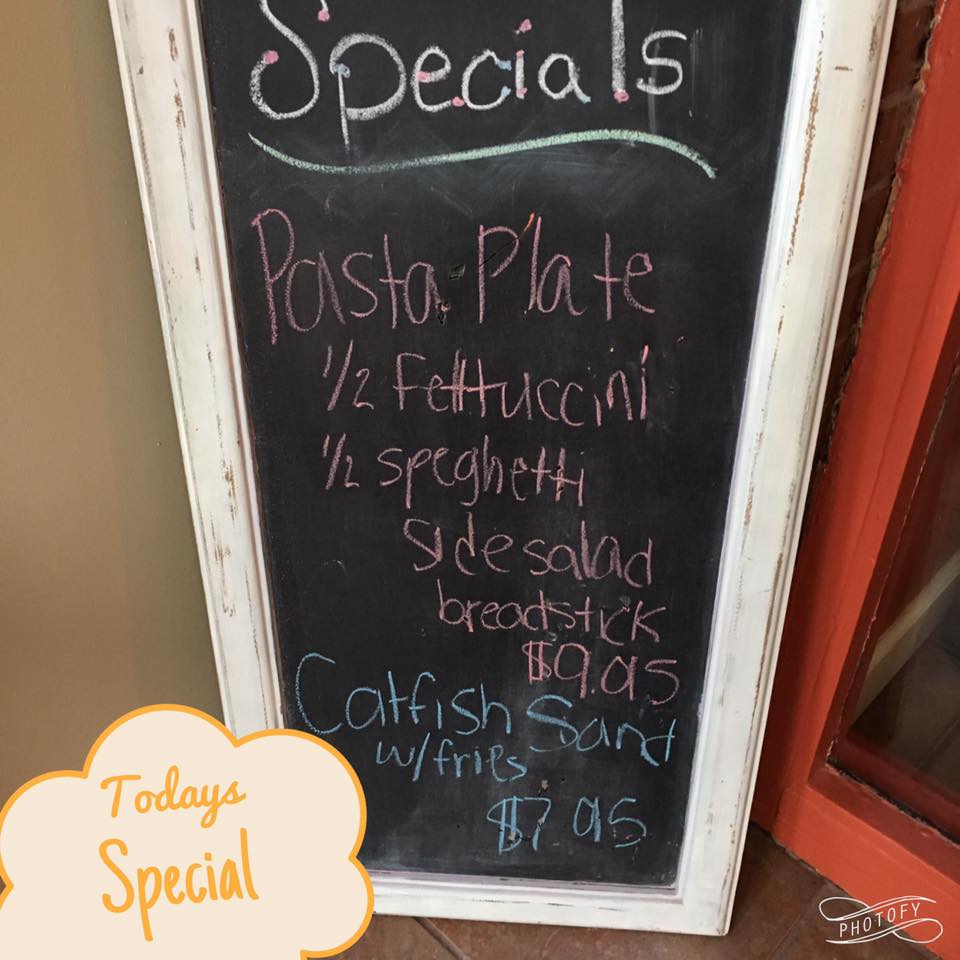 Specials
Pasta Plate
1/2 Fettuccini
1/2 speghetti
Side salad
breadstick
$9.95
Catfish Sand
w/fries
$7.95
Todays
Special
PHOTOFY